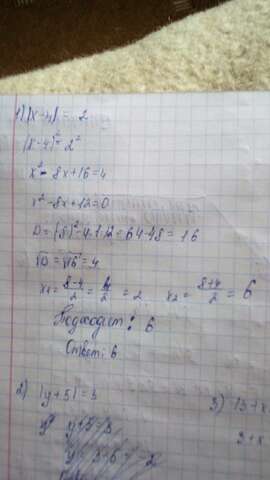 1) |x-4| = 2
(x-4)² = 2²
x² - 8x + 16 = 4
x² - 8x + 12 = 0
D = (8)² - 4·1·12 = 64 - 48 = 16
√D = √16 = 4
x₁ = (8-4)/2 = 4/2 = 2 x₂ = (8+4)/2 = 6
Подходит: 6
Ответ: 6
2) |y+5| = 3 3)
y+5=3
3+x